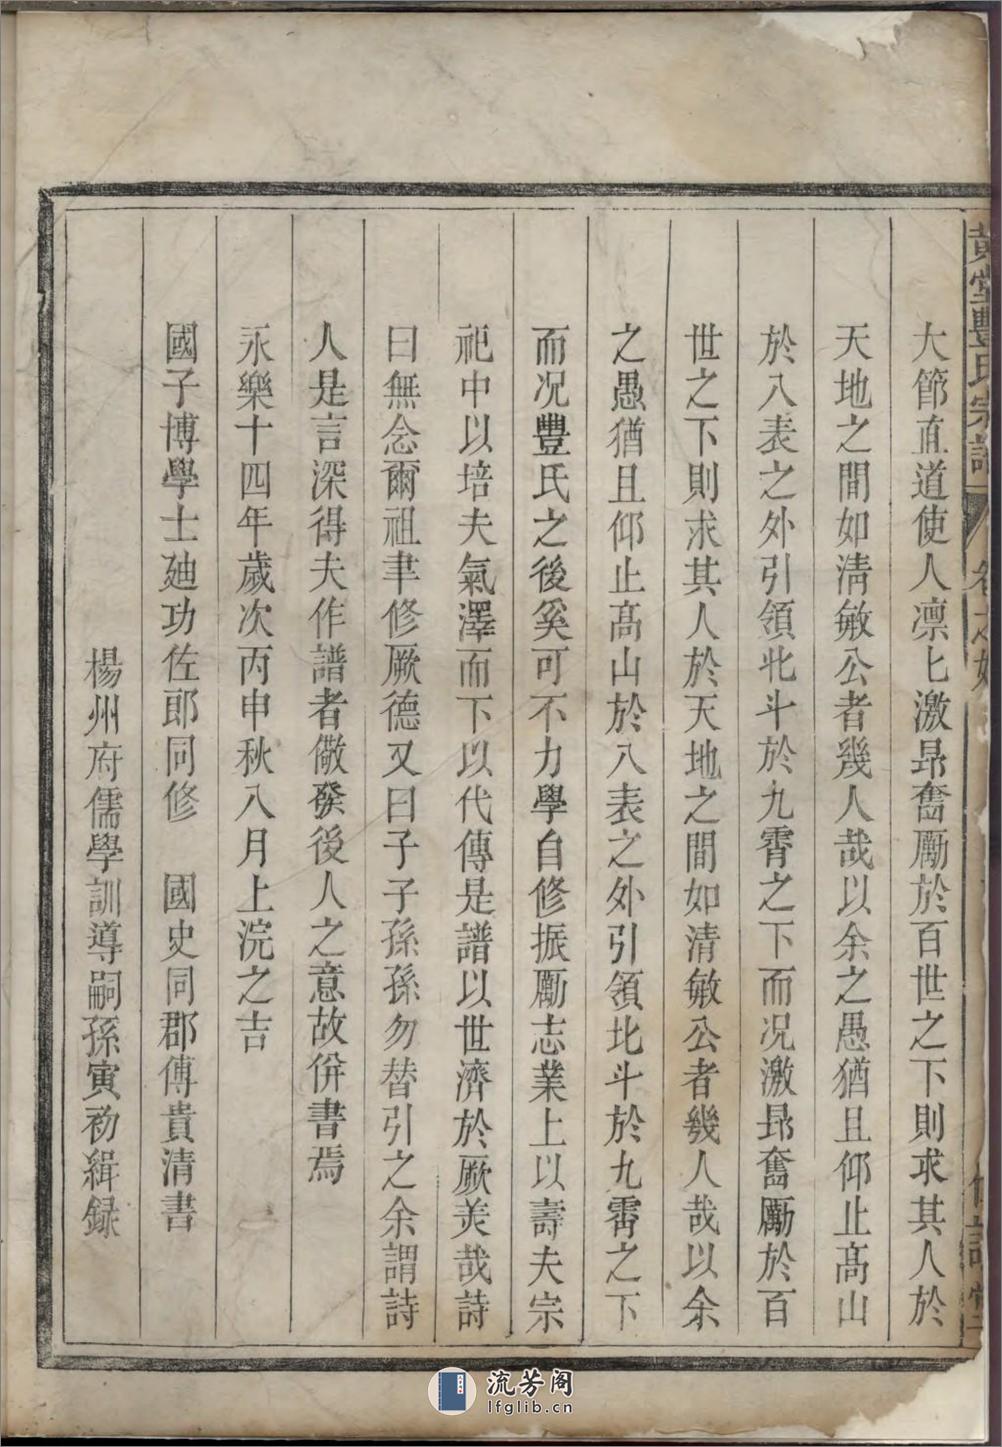 黃堂豐氏宗譜 卷之始
大節直道使人凛匕激昂奮勵於百世之下則求其人於
天地之間如淸敏公者幾人哉以余之愚猶且仰止髙山
於八表之外引領北斗於九霄之下而况激昂奮勵於百
世之下則求其人於天地之間如清敏公者幾人哉以余
之愚猶且仰止髙山於八表之外引領北斗於九霄之下
而况豐氏之後奚可不力學自修振勵志業上以壽夫宗
祀中以培夫氣澤而下以代傳是譜以世濟於厥美哉詩
曰無念爾祖聿修厥德又曰子子孫孫勿替引之余謂詩
人是言深得夫作譜者儆發後人之意故併書焉
永樂十四年歲次丙申秋八月上浣之吉
國子博學士廸功佐郎同修 國史同郡傅貴清書
楊州府儒學訓導嗣孫寅初緝録
流芳阁
lfglib.cn